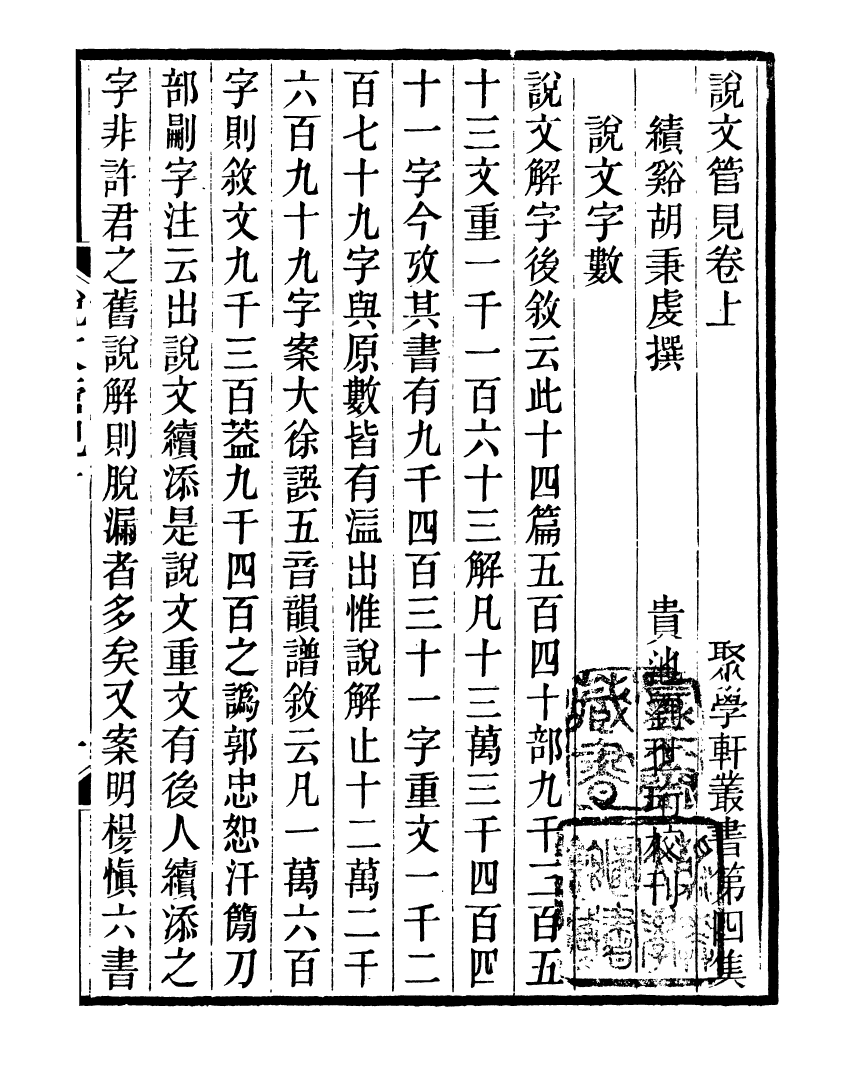 說文管見卷上
聚學軒叢書第四集
績谿胡秉虔撰
貴池劉世珩校刊
說文字數
說文解字後敘云此十四篇五百四十部九千三百五
十三文重一千一百六十三解凡十三萬三千四百四
十一字今攷其書有九千四百三十一字重文一千二
百七十九字與原數皆有溢出惟說解止十二萬二千
六百九十九字案大徐譔五音韻譜敘云凡一萬六百
字則敘文九千三百葢九千四百之譌郭忠恕汗簡刀
部劚字注云出說文續添是說文重文有後人續添之
字非許君之舊說解則脫漏者多矣又案明楊慎六書